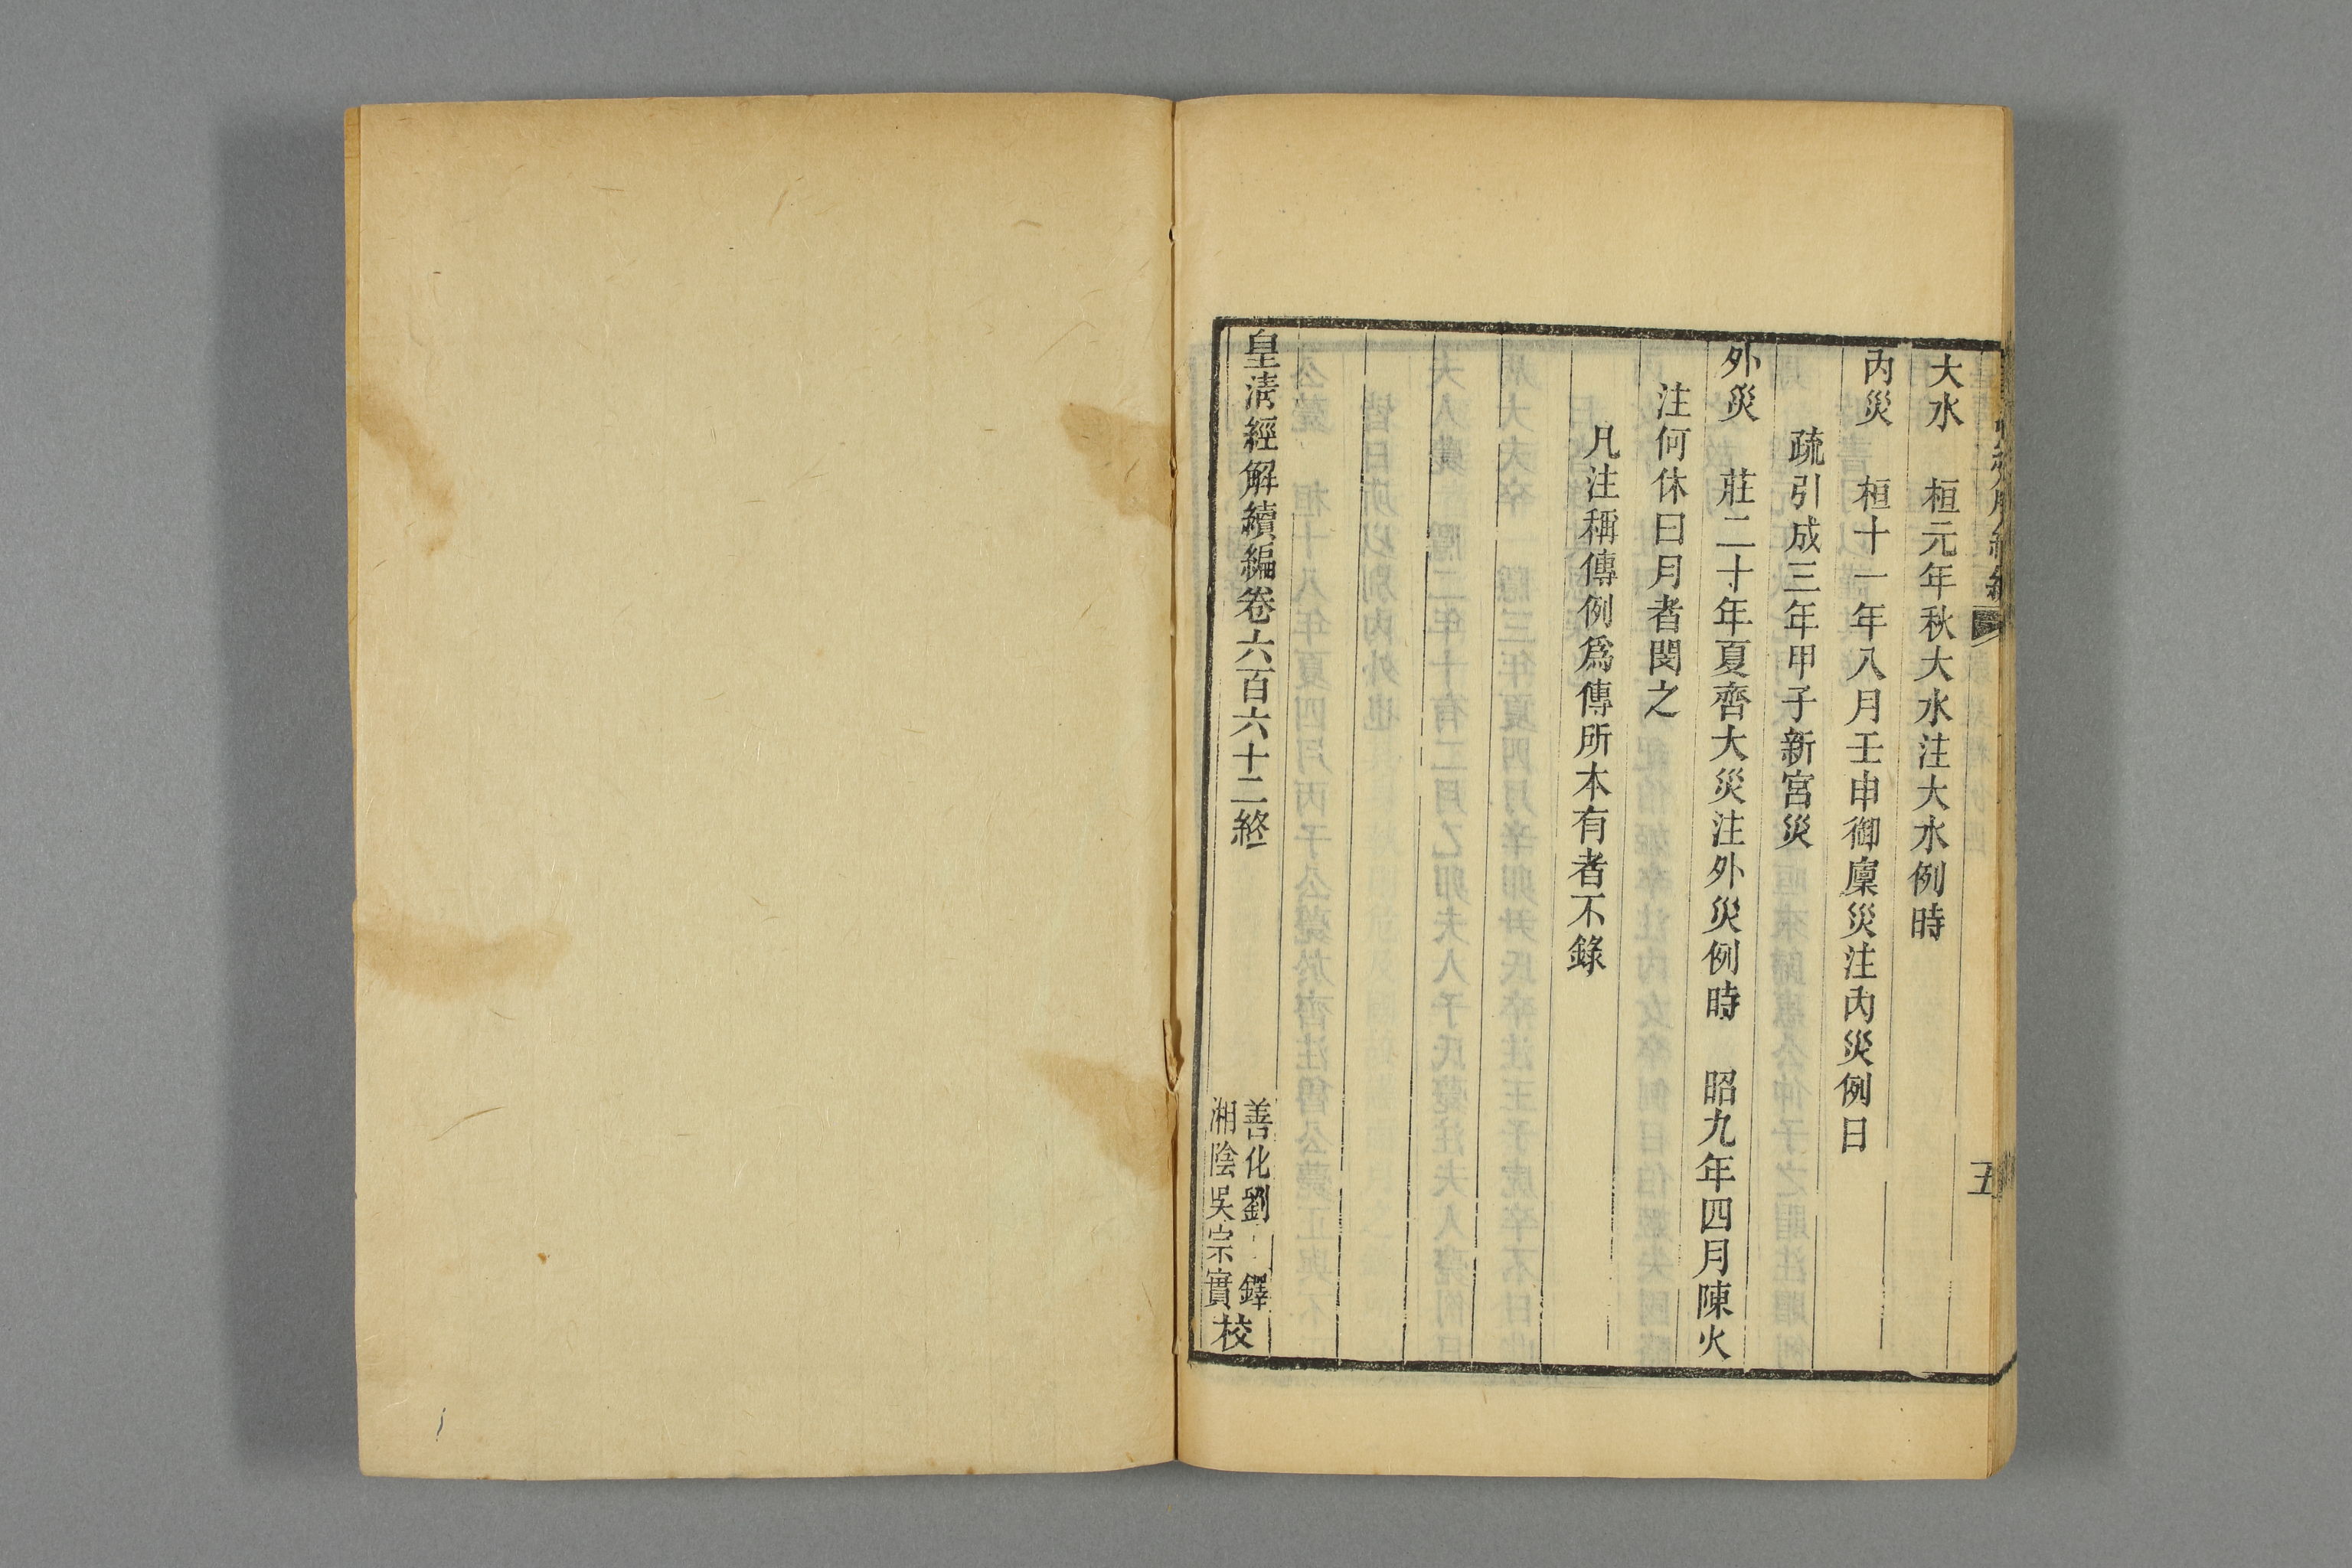 大水　桓元年秋大水注大水例時
內災　桓十一年八月壬申御廩災注內災例日
疏引成三年甲子新宮災
外災　莊二十年夏齊大災注外災例時　昭九年四月陳火
注何休曰月者閔之
凡注稱傳例爲傳所本有者不錄
皇清經解續編卷六百六十二終
善化劉　鐸
湘陰吳宗實
校
五